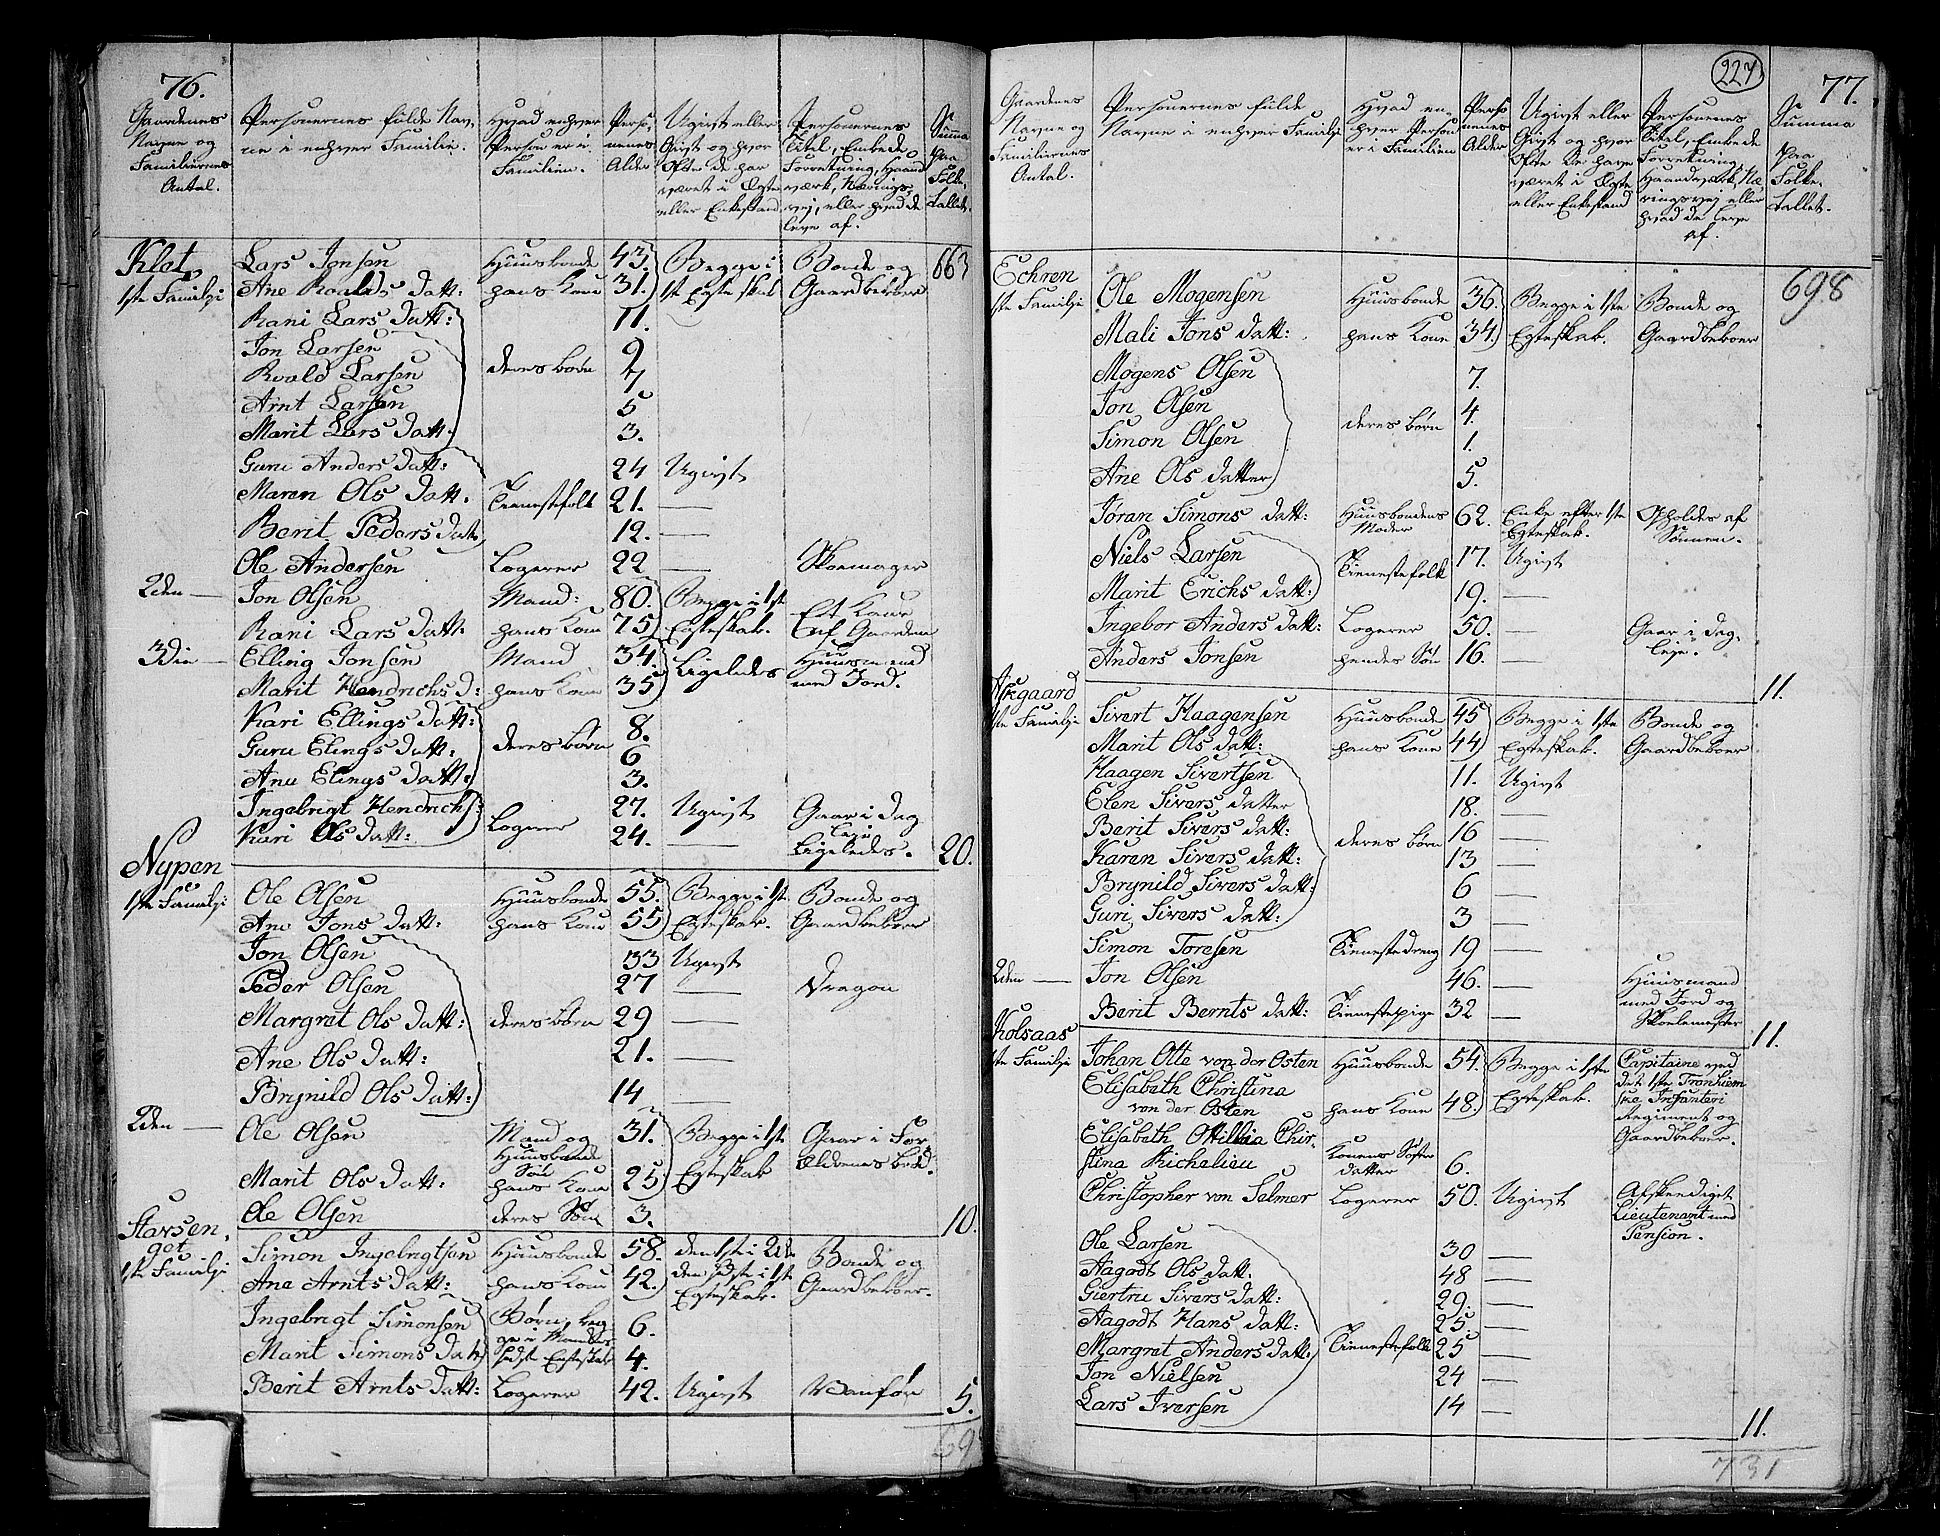 76.
Gaardenes Navne og Familiernes Antal.
Personernes fulde Navne i enhver Familie.
Hvad enhver Person er i Familien.
Personernes Alder
Ugivt eller Givt og hvor Ofte de har været i Ægte eller Enkestand
Personernes Titel, Embede Forretning, Haandværk, Næringsvej, eller hvad de leve af.
Summa paa Folketallet.
Klet Lars Jonsen Huusbonde 43. Begge i Bonde og 663
1ste Familji Ane Roalds Datt: hans Kone 31. 1st Egteskab Gaardbeboer
Rani Lars Datt: 11.
Jon Larsen 9
Roald Larsen deres børn 7
Arnt Larsen 5
Marit Lars Datt. 3.
Guru Anders Datt: 24 Ugivt
Maren Ols Datt. Tienestefolk 21. —
Berit Peders Datt 12. —
Ole Andersen Logerer 22 — Skoemager
2den — Jon Olsen Mand: 80. Begge i 1st Et Kaar
Rani Lars Datt: hans Kone 75 Egteskab. af Gaarden
3die — Elling Jonsen Mand 34. Ligeledes Huusmand
Marit Hendrichs D: hans Kone 35 med Jord.
Kari Ellings Datt: 8.
Guru Elings Datt: deres børn 6
Ane Elings Datt: 3.
Ingebrigt Hendrichs: Logerer 27. Ugivt Gaar i Dag leje
Kari Ols Datt: 24. — Ligeledes. 20.
Nypen
1ste Familji Ole Olsen Huusbonde 55. Begge i 1st Bonde og
Ane Jons Datt: hans Kone 55 Egteskab. Gaardbeboer
Jon Olsen 33 Ugivt
Peder Olsen 27 — Dragon
Margret Ols Datt: deres børn 29 —
Ane Ols Datt: 21. —
Brynild Ols Datt: 14 —
2den — Ole Olsen Mand og Huusbonde Søn 31. Begge i 1st Gaar i For
Marit Ols Datt: hans Kone 25 Egteskab ældrenes brød.
Ole Olsen deres Søn 3. 10.
Starsen,
get
1ste Familji Simon Ingebrigtsen Huusbonde 58. den 1ste i 2det Bonde og
Ane Arnts Datt: hans Kone 42. den sidste i 1ste Egteskab. Gaardbeboer.
Ingebrigt Simonsen Børn, beg 6.
Marit Simons Datt ge i Mandens sidste Egteskab 4.
Berit Arnts Datt: Logerer 42. Ugivt Vanfør 5.
698
227
77.
Gaardenes Navne og Familiernes Antal.
Personernes fulde Navne i enhver Familje
Hvad enhver Person er i Familien
Personenes Alder
Ugivt eller Givt og hvor Ofte de have været i Ægte eller Enkestand
Personenes Titel, Embede Forretning, Haandværk, Næringsvej eller hvad de leve af.
Summa paa Folketallet.
Echren 698
1ste Familji Ole Mogensen Huusbonde 36. Begge i 1ste Bonde og
Mali Jons Datt: hans Kone 34. Egteskab. Gaardbeboer
Mogens Olsen 7.
Jon Olsen 4.
Simon Olsen deres børn 1.
Ane Ols Datter 5.
Jøran Simons Datt: Huusbondens Moder 62. Enke efter 1ste Egteskab. Opholdes af Sønnen.
Niels Larsen Tienestefolk 17. Ugivt
Marit Erichs Datt: 19. —
Ingebor Anders Datt: Logerer 50. — Gaar i Dag leje.
Anders Jonsen hendes Søn 16. — 11.
Aegaard
1ste Familji Sivert Haagensen Huusbonde 45 Begge i 1ste Bonde og
Marit Ols Datt: hans Kone 44 Egteskab. Gaardbeboer
Haagen Sivertsen 11. Ugivt
Elen Sivers Datter 18. —
Berit Sivers Datt: deres børn 16 —
Karen Sivers Datt: 13 —
Brynild Sivers Datt: 6 —
Guri Sivers Datt: 3 —
Simon Toresen Tienestedreng 19 —
2den — Jon Olsen 46. — Huusmand med Jord og Skolemester
Berit Bernts Datt: Tienestepige 32 — 11.
Kolsaas
1ste Familji Johan Otte von der Osten Huusbonde 54. Begge i 1ste Capitaine ved
Elisabeth Christina von der Osten hans Kone 48. Egteskab. det 1ste Tronhiemske Infanteri Regiment og Gaardbeboer.
Elisabeth Ottillia Christina Richelieu Konens Søster datter 6.
Christopher von Selmer Logerer 50. Ugivt Afskediget Lieutenant med Pension.
Ole Larsen 30 —
Aagodt Ols Datt. 48 —
Giertru Sivers Datt: 29. —
Aagodt Hans Datt: 25. —
Margret Anders Datt: Tienestefolk 25 —
Jon Nielsen 24 —
Lars Iversen 14 —
11.
731